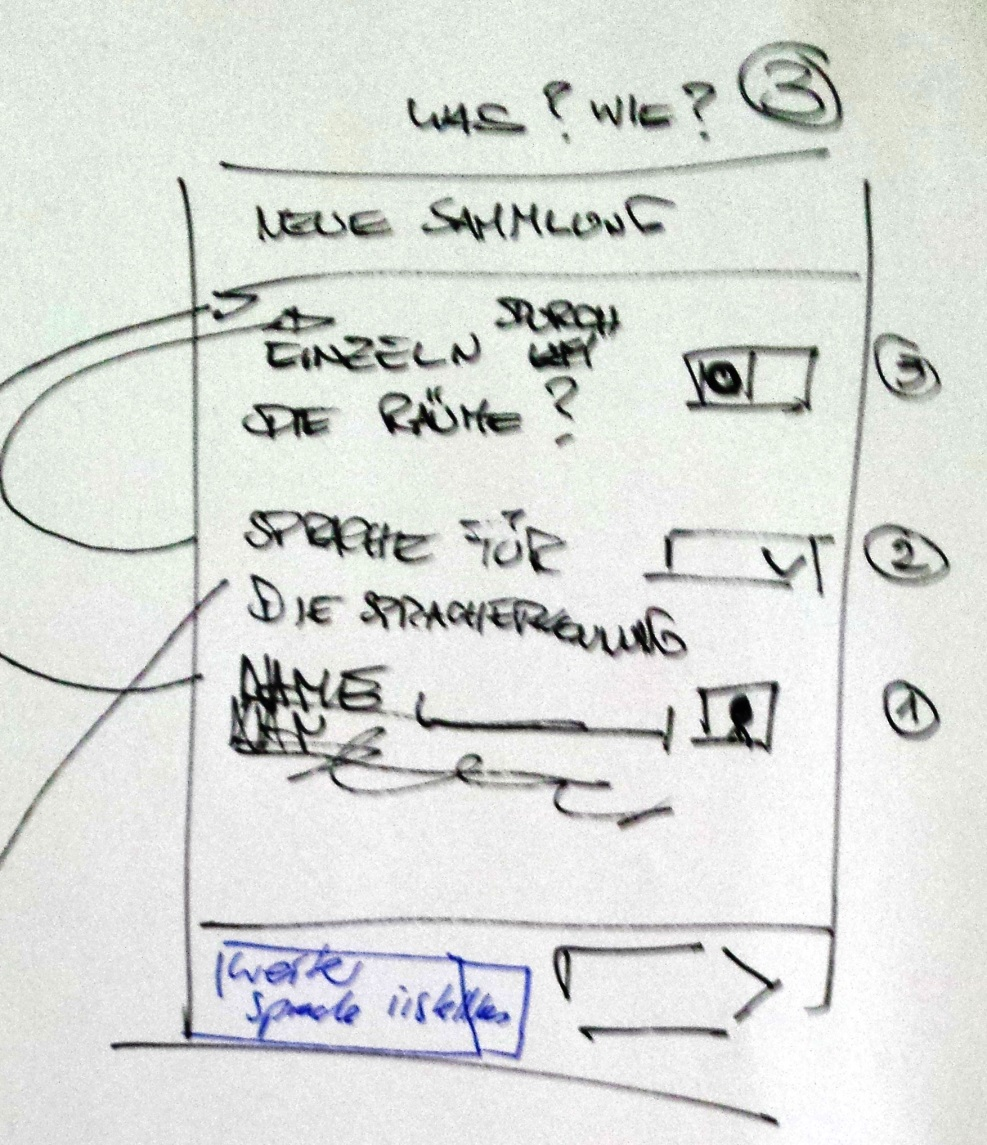 WAS? WIE? 3
NEUE SAMMLUNG
EINZELN DURCH
DIE RÄUME? 3
SPRACHE FÜR 2
DIE SPRACHERKENNUNG
NAME 1
Sprache